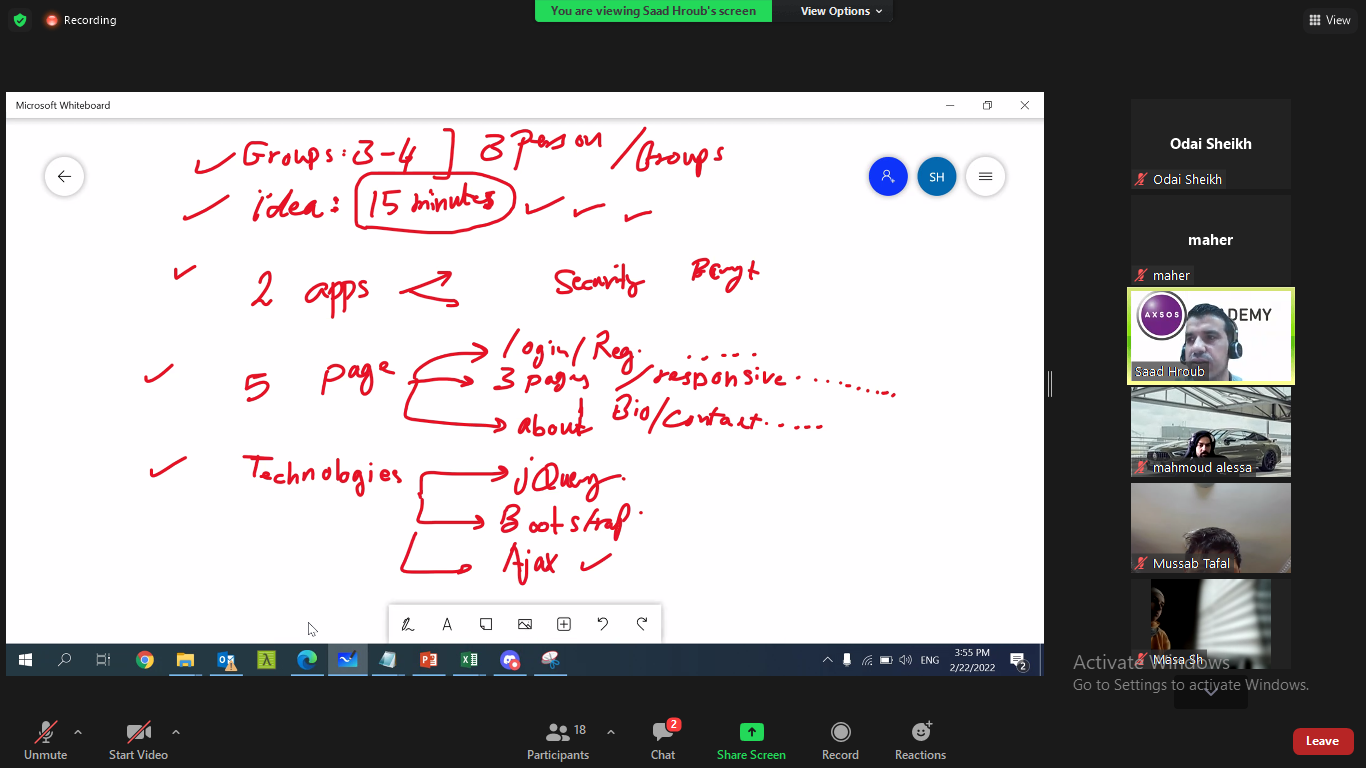 Recording
You are viewing Saad Hroub's screen
View Options
View
Microsoft Whiteboard
Groups: 3-4 ] 3 person / Groups
idea: 15 minutes
2 apps
Security Bcrypt
5 page
login / Reg.
3 pages / responsive
about / Bio / Contact
Technologies
jQuery
Bootstrap
Ajax
SH
A
ENG
3:55 PM
2/22/2022
2
Odai Sheikh
Odai Sheikh
maher
maher
AXSOS
DEMY
Saad Hroub
mahmoud alessa
Mussab Tafal
Masa Sh
Activate Windows
Go to Settings to activate Windows.
Unmute
Start Video
Participants
18
Chat
2
Share Screen
Record
Reactions
Leave